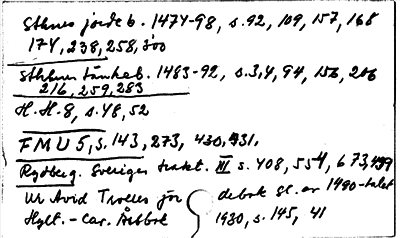 Sthms jordeb. 1474-98, s.92, 109, 157, 168
174, 238, 258, 300
Sthlms tänkeb. 1483-92, s.3,4, 94, 156, 206
216, 259, 283
H.H.8, s.48, 52
FMU 5, s.143, 273, 430, 431.
Rydberg. Sveriges trakt. III s.408, 554, 673, 499
Ur Avid Trolles jor debok sl. av 1490-talet
Hylt.-Cav. Årsbok 1930, s.145, 41